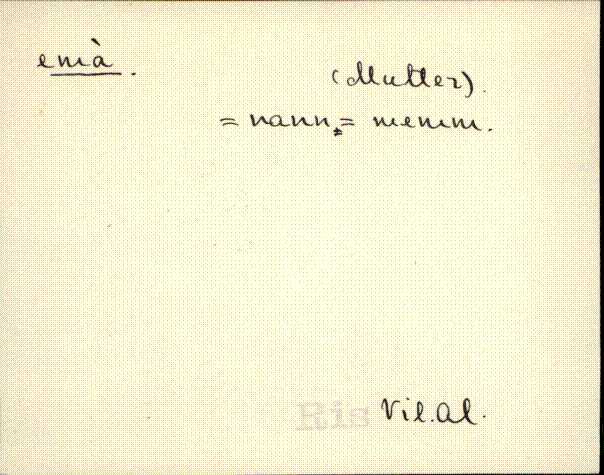 emà.
(Mutter).
= nann = memm.
Ris Vil.Al.